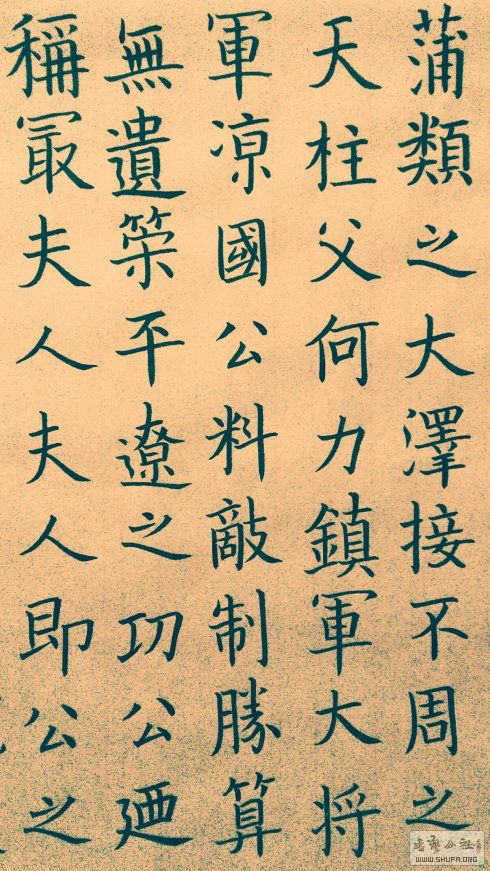 蒲類之大澤接不周之
天柱父何力鎮軍大将
軍凉國公料敵制勝算
無遺筞平遼之㓛公廼
稱冣夫人夫人即公之
WWW.SHUFA.ORG